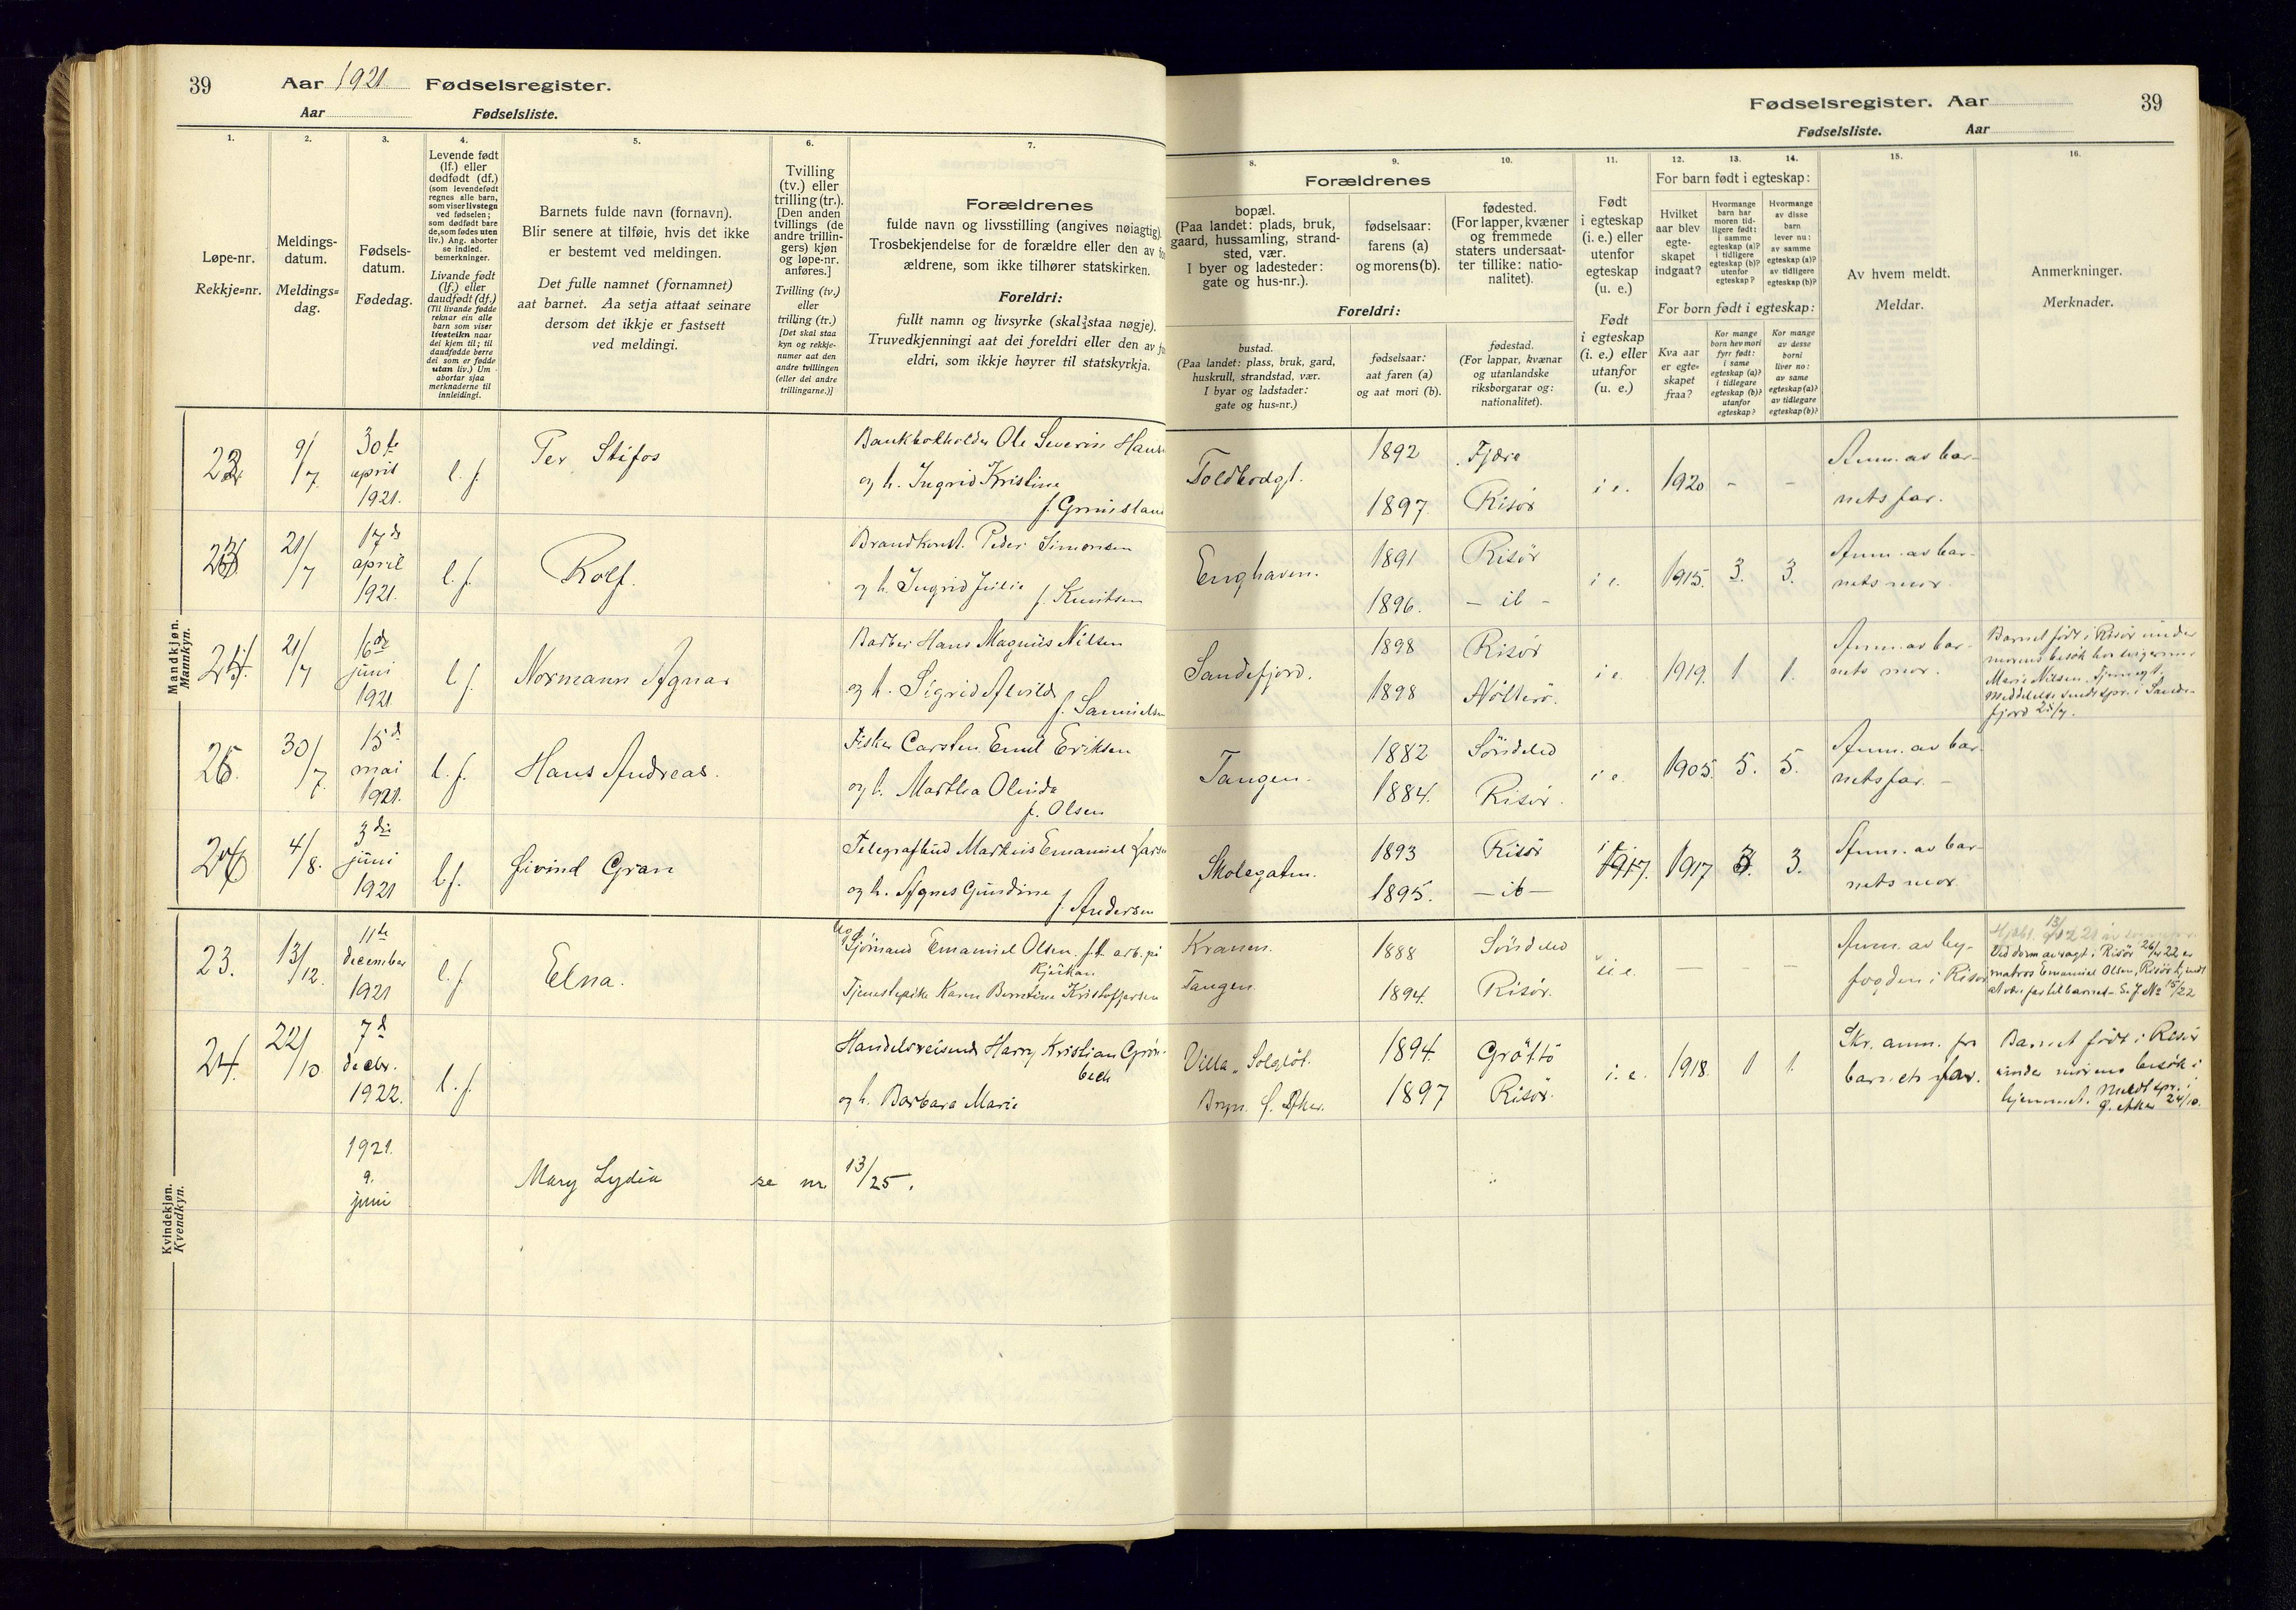 39
Aar 1921. Fødselsregister.
Aar Fødselsliste.
1.
2.
3.
4.
5.
6.
7.
Løpe-nr.
Rekkje=nr.
Meldings-
datum.
Meldings=
dag.
Fødsels-
datum.
Fødedag.
Levende født
(lf.) eller
dødfødt (df.)
(som levendefødt
regnes alle barn,
som viser livstegn
ved fødselen;
som dødfødt bare
de, som fødes uten
liv.) Ang. aborter
se indled.
bemerkninger.
Livande født
(lf.) eller
daudfødt (df.)
(Til livande fødde
reknar ein alle
barn som viser
livsteikn naar
dei kjem til; til
daudfødde berre
dei som er fødde
utan liv.) Um
abortar sjaa
merknaderne til
innleidingi.
Barnets fulde navn (fornavn).
Blir senere at tilføie, hvis det ikke
er bestemt ved meldingen.
Det fulle namnet (fornamnet)
aat barnet. Aa setja attaat seinare
dersom det ikkje er fastsett
ved meldingi.
Tvilling
(tv.) eller
trilling (tr.).
[Den anden
tvillings (de
andre trillin-
gers) kjøn
og løpe-nr.
anføres.]
Tvilling (tv.)
eller
trilling (tr.)
[Det skal staa
kyn og rekkje-
numer aat den
andre tvillingen
(eller dei andre
trillingarne.)]
Forældrenes
fulde navn og livsstilling (angives nøiagtig).
Trosbekjendelse for de forældre eller den av for
ældrene, som ikke tilhører statskirken.
Foreldri:
fullt namn og livsyrke (skal staa nøgje).
Truvedkjenningi aat dei foreldri eller den av for
eldri, som ikkje høyrer til statskyrkja.
Mandkjøn.
Mannkyn.
22
9/7
30te
april
1921.
l. f.
Per Stifos
Bankbokholder Ole Severin Hansen
og h. Ingrid Kristine
f. Grimsland
23
21/7
17de
april
1921.
l. f.
Rolf.
Brandkonst. Peder Simonsen
og h. Ingrid Julie f. Knutsen
24
21/7
16de
juni
1921.
l f.
Normann Agnar
Barber Hans Magnus Nilsen
og h. Sigrid Alvilde f. Samuelsen
25.
30/7
15de
mai
1921.
l. f.
Hans Andreas.
Fisker Carsten Emil Eriksen
og h. Marthea Olinda
f. Olsen
26
4/8.
3die
juni
1921
l f.
Øivind Gran
Telegrafbud Markus Emanuel Larsen
og h. Agnes Gundine f. Andersen
Kvindekjøn.
Kvendkyn.
23.
13/12
11te
december
1921
l. f.
Elna.
Sjømand Emanuel Olsen, f.t. arb. på
Rjukan
Tjenestepike Karen Berntine Kristoffersen
24.
22/10
7de
decbr.
1922.
l. f.
Handelsreisende Harry Kristian Grøn-
bech
og h. Barbara Marie
1921.
9.
juni
Mary Lydia se nr. 13/25.
Fødselsregister. Aar 39
Fødselsliste. Aar
8.
9.
10.
11.
12.
13.
14.
15.
16.
Forældrenes
bopæl.
(Paa landet: plads, bruk,
gaard, hussamling, strand-
sted, vær.
I byer og ladesteder:
gate og hus-nr.).
fødselsaar:
farens (a)
og morens (b).
fødested.
(For lapper, kvæner
og fremmede
staters undersaat-
ter tillike: natio-
nalitet).
Foreldri:
bustad.
(Paa landet: plass, bruk, gard,
huskrull, strandstad, vær.
I byar og ladstader:
gate og hus=nr.)
fødselsaar:
aat faren (a)
og aat mori (b).
fødestad.
(For lappar, kvænar
og utanlandske
riksborgarar og:
nationalitet).
Født
i egteskap
(i. e.) eller
utenfor
egteskap
(u. e.)
Født
i egteskap
(i. e.) eller
utanfor
egteskap
(u. e.)
For barn født i egteskap:
Hvilket
aar blev
egte-
skapet
indgaat?
Hvormange
barn har
moren tid-
ligere født:
i samme
egteskap (a)?
i tidligere
egteskap (b)?
utenfor
egteskap?
Hvormange
av disse
barn
lever nu:
av samme
egteskap (a)?
av tidligere
egteskap (b)?
For born født i egteskap:
Kva aar
er egte=
skapet
fraa?
Kor mange
born hev mori
fyrr født:
i same
egteskap (a)?
i tidlegare
egteskap (b)?
utanfor
egteskap?
Kor mange
av desse
borni
liver no:
av same
egteskap (a)?
av tidlegare
egteskap (b)?
Av hvem meldt.
Meldar.
Anmerkninger.
Merknader.
Toldbodgt.
1892
1897.
Fjære
Risör
i e.
1920
-
-
Anm. av bar-
nets far.
Enghaven.
1891
1896.
Risör
- ib -
i e.
1915.
3.
3.
Anm. av bar-
nets mor.
Sandefjord.
1898
1898
Risör
Nötterö.
i e.
1919.
1
1.
Anm. av bar-
nets mor.
Barnet født i Risör under
morens besök hos svigermor
Marie Nilsen, Tjennegt,
Meddelelse sendt spr. i Sande-
fjord 25/7.
Tangen.
1882
1884.
Söndeled
Risör.
i e.
1905.
5.
5.
Anm. av bar-
nets far. -
Skolegaten.
1893
1895.
Risör
- ib -
i e.
1917.
1917
3.
3.
Anm. av bar-
nets mor.
Kranen.
Tangen
1888
1894.
Söndeled
Risör.
u e.
-
-
-
Anm. av by-
fogden i Risör
Ved dom avsagt i Risör 26/22 er
matros Emanuel Olsen, Risör
far til barnet - S. J. No 15/22
Villa "Solgløt.
Bryn
1894.
1897
Grøttö
Risör.
i. e.
1918.
1
1.
Skr. anm. fra
barnets far.
Barnet født i Risör
under morens besök i
hjemmet. Meldt spr. i
Ø. Aker 24/10.